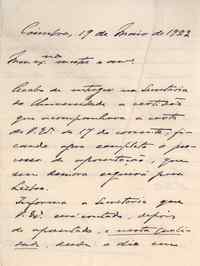 Coimbra, 19 de Maio de 1922
Acabo de entregar na Secretaria
da Universidade, a certidão
que acompanhava a carta
de V. Exª de 17 do corrente, fi-
cando assim completo o pro-
cesso de aposentação, que
sem demora seguirá para
Lisboa.
Informa a Secretaria que
V. Exª será contado, depois
de aposentado, e nesta quali-
dade, desde o dia em